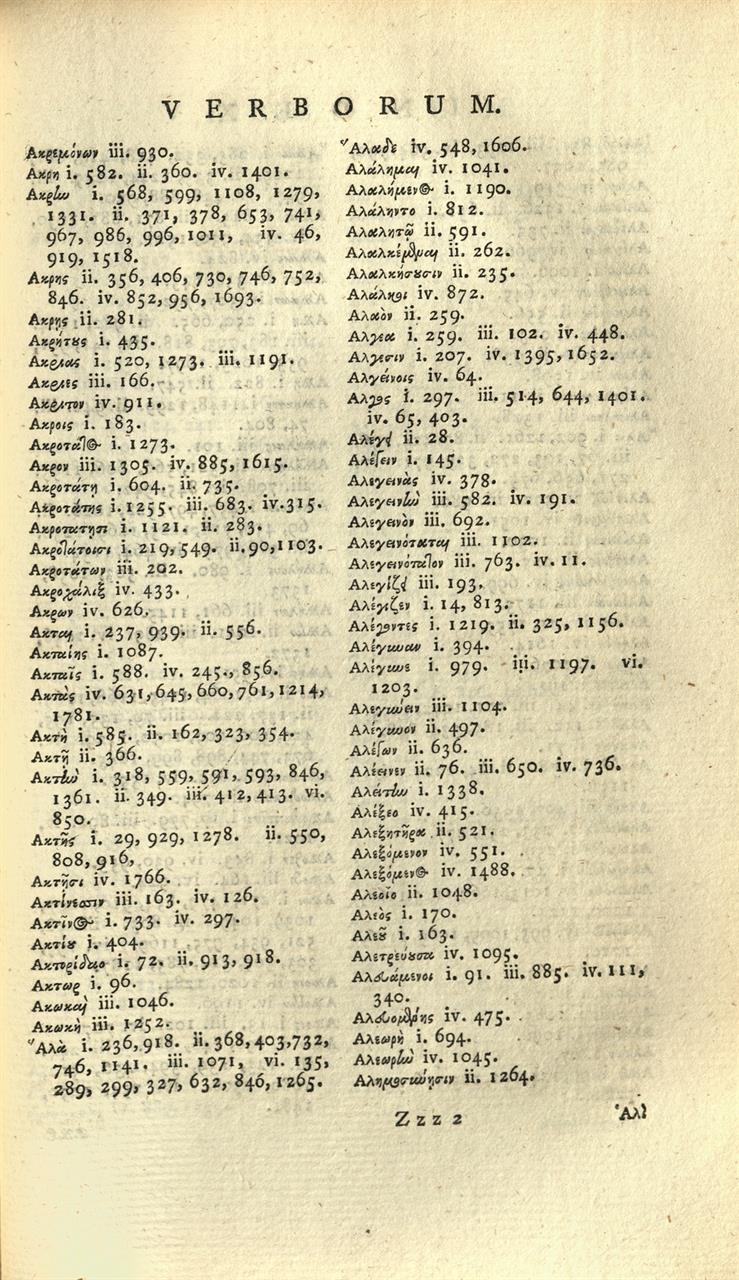 VERBORUM.
Ακρεμόνων iii. 930.
Ακρη i. 582. ii. 360. iv. 1401.
Ακρἰω i. 568, 599, 1108, 1279,
1331. ii. 371, 378, 653, 741,
967, 986, 996, 1011, iv. 46,
919, 1518.
Ακρης ii. 356, 406, 730, 746, 752,
846. iv. 852, 956, 1693.
Ακρης ii. 281.
Ακρήτους i. 435.
Ακριας i. 520, 1273. iii. 1191.
Ακριες iii. 166.
Ακριτον iv. 911.
Ακροις i. 183.
i. 1273.
Ακρον iii. 1305. iv. 885, 1615.
Ακροτάτη i. 604. ii. 735.
Ακροτάτης i. 1255. iii. 683. iv. 315.
Ακροτατησι i. 1121. ii. 283.
Ακροτάτοισι i. 219, 549. ii. 90, 1103.
Ακροτάτων iii. 202.
Ακροχάλιξ iv. 433.
Ακρων iv. 626.
Ακται i. 237, 939. ii. 556.
Ακταίης i. 1087.
Ακταῖς i. 588. iv. 245., 856.
Ακτὰς iv. 631, 645, 660, 761, 1214,
1781.
Ακτὴ i. 585. ii. 162, 323, 354.
Ακτῆ ii. 366.
Ακτἰὼ i. 318, 559, 591, 593, 846,
1361. ii. 349. iii. 412, 413. vi.
850.
Ακτῆς i. 29, 929, 1278. ii. 550,
808, 916,
Ακτῆσι iv. 1766.
Ακτίνεσσιν iii. 163. iv. 126.
Ακτῖνος i. 733. iv. 297.
Ακτίου i. 404.
Ακτορίδαο i. 72. ii. 913, 918.
Ακτωρ i. 96.
Ακωκαὶ iii. 1046.
Ακωκὴ iii. 1252.
Ἅλα i. 236, 918. ii. 368, 403, 732,
746, 1141. iii. 1071, vi. 135,
289, 299, 327, 632, 846, 1265.
Ἅλαδε iv. 548, 1606.
Αλάλημαι iv. 1041.
Αλαλήμενος i. 1190.
Αλάληντο i. 812.
Αλαλητῷ ii. 591.
Αλαλκέμθμαι ii. 262.
Αλαλκήσουσιν ii. 235.
Αλάληθι iv. 872.
Αλαὸν ii. 259.
Αλγεα i. 259. iii. 102. iv. 448.
Αλγεσιν i. 207. iv. 1395, 1652.
Αλγείνοις iv. 64.
Αλγος i. 297. iii. 514, 644, 1401.
iv. 65, 403.
Αλέγει ii. 28.
Αλέγειν i. 145.
Αλεγεινὰς iv. 378.
Αλεγεινἰὼ iii. 582. iv. 191.
Αλεγεινὸν iii. 692.
Αλεγεινόταται iii. 1102.
Αλεγεινότατον iii. 763. iv. 11.
Αλεγίζει iii. 193.
Αλέγιζεν i. 14, 813.
Αλέγοντες i. 1219. ii. 325, 1156.
Αλέγυναν i. 394.
Αλέγυνε i. 979. iii. 1197. vi.
1203.
Αλεγύνειν iii. 1104.
Αλέγυνον ii. 497.
Αλέγων ii. 636.
Αλέεινεν ii. 76. iii. 650. iv. 736.
Αλείτἰω i. 1338.
Αλέξεο iv. 415.
Αλεξητῆρα ii. 521.
Αλεξόμενον iv. 551.
Αλεξόμενος iv. 1488.
Αλεοῖο ii. 1048.
Αλεὸς i. 170.
Αλεῦ i. 163.
Αλετρεύουσα iv. 1095.
Αλευάμενοι i. 91. iii. 885. iv. 111,
340.
iv. 475.
Αλεωρὴ i. 694.
Αλεωρἰὼ iv. 1045.
Αλημοσύνησιν ii. 1264.
Zzz 2
Ἁλὶ